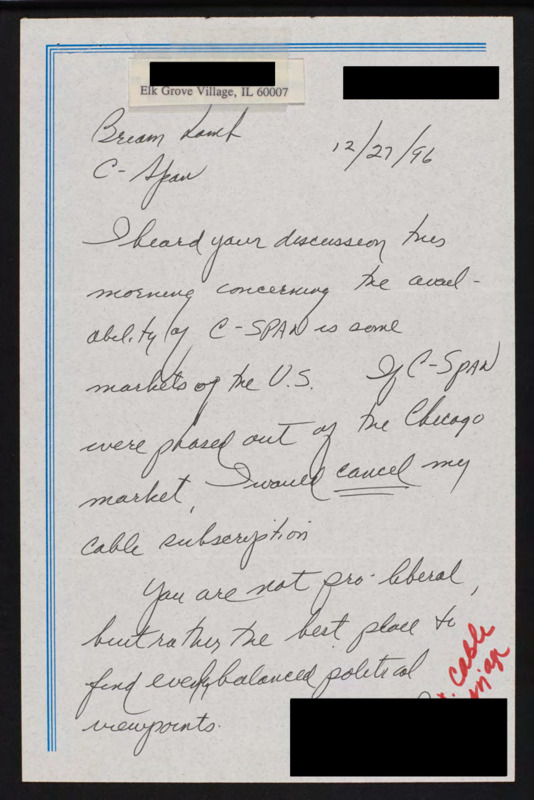 Elk Grove Village, IL 60007
Bream Lamb
C-Span
12/27/96
I heard your discussion this
morning concerning the avail-
ability of C-SPAN is some
markets of the U.S. If C-SPAN
were phased out of the Chicago
market, I would cancel my
cable subscription
You are not pro-liberal,
but rather the best place to
find evenly balanced political
viewpoints.
cable